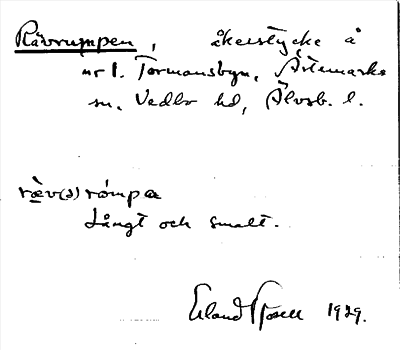 Rävrumpen, åkerstycke å
nr 1. Tormansbyn, Ärtemarks
sn. Vedbo hd, Älvsb. l.
ræ̀v(ə)rómpa
Långt och smalt.
Erland Rosell 1929.